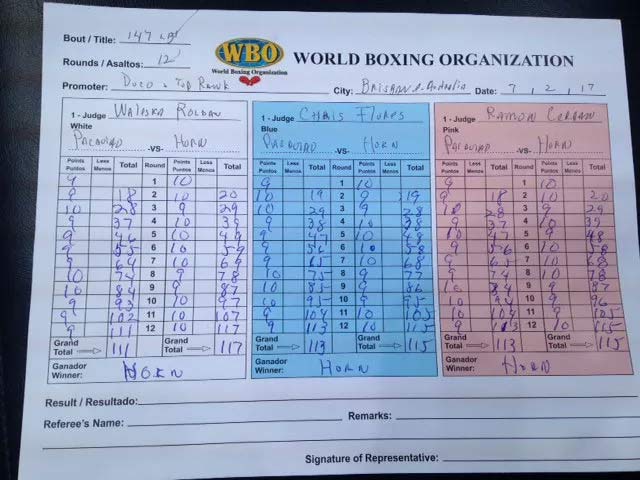 Bout / Title: 147 LB
WBO
World Boxing Organization
WORLD BOXING ORGANIZATION
Rounds / Asaltos: 12
Promoter: DUCO & TOP RANK City: BRISBANE Australia Date: 7, 2, 17
1 - Judge WALESKA ROLDAN 1 - Judge CHRIS FLORES 1 - Judge RAMON CERDAN
White Blue Pink
PACQUIAO -VS- HORN PACQUIAO -VS- HORN PACQUIAO -VS- HORN
Points Puntos Less Menos Total Round Points Puntos Less Menos Total Points Puntos Less Menos Total Round Points Puntos Less Menos Total Points Puntos Less Menos Total Round Points Puntos Less Menos Total
9 1 10 9 1 10 9 1 10
9 18 2 10 20 10 19 2 9 19 9 18 2 10 20
10 28 3 9 29 10 29 3 9 28 10 28 3 9 29
9 37 4 10 39 9 38 4 10 38 9 37 4 10 39
9 46 5 10 49 9 47 5 10 48 10 47 5 9 48
9 55 6 10 59 9 56 6 10 58 9 56 6 10 58
9 64 7 10 69 9 65 7 10 68 9 65 7 10 68
10 74 8 9 78 10 75 8 9 77 9 74 8 10 78
10 84 9 9 87 10 85 9 9 86 10 84 9 9 87
9 93 10 10 97 10 95 10 9 95 10 94 10 9 96
9 102 11 10 107 9 104 11 10 105 10 104 11 9 105
9 111 12 10 117 9 113 12 10 115 9 113 12 10 115
Grand Total 111 Grand Total 117 Grand Total 113 Grand Total 115 Grand Total 113 Grand Total 115
Ganador Winner: HORN Ganador Winner: HORN Ganador Winner: HORN
Result / Resultado:
Referee's Name: Remarks:
Signature of Representative: